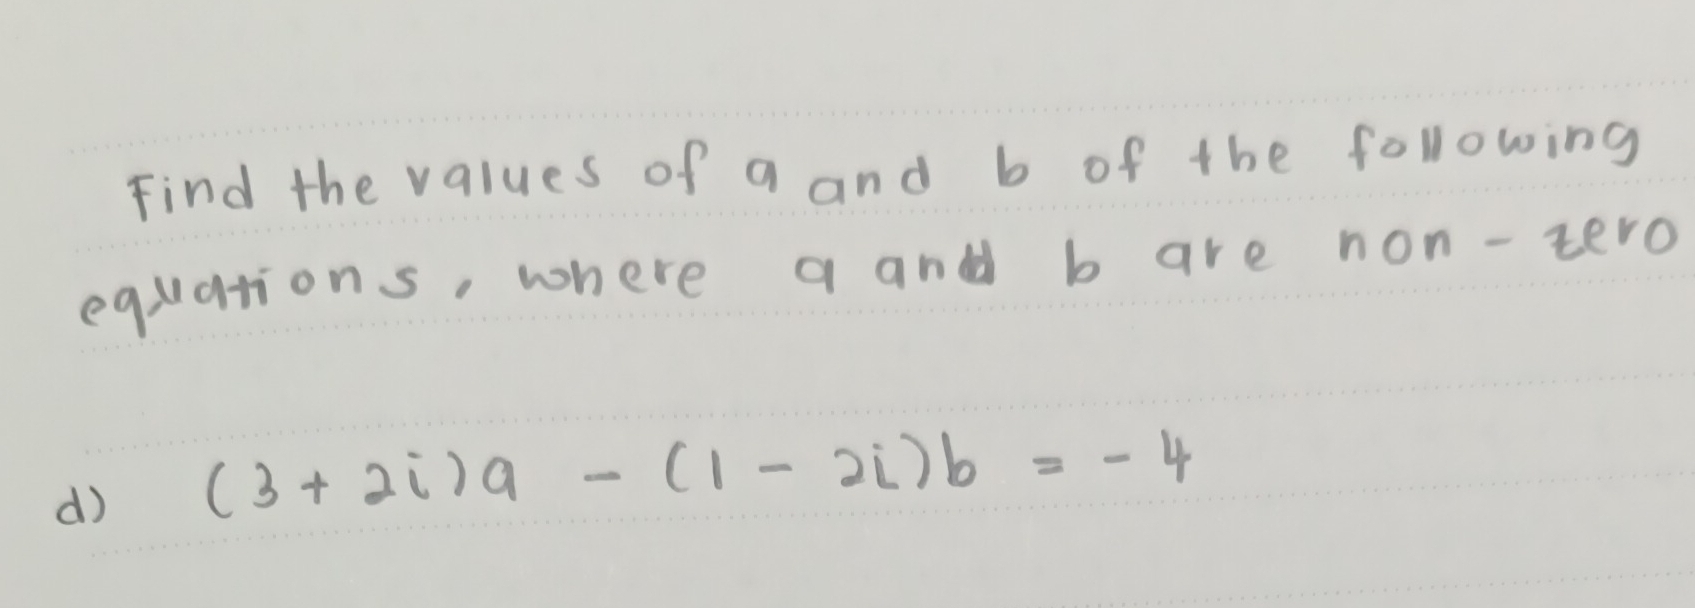 Find the values of a and b of the following
equations, where a and b are non-zero
d) (3 + 2i)a - (1 - 2i)b = -4